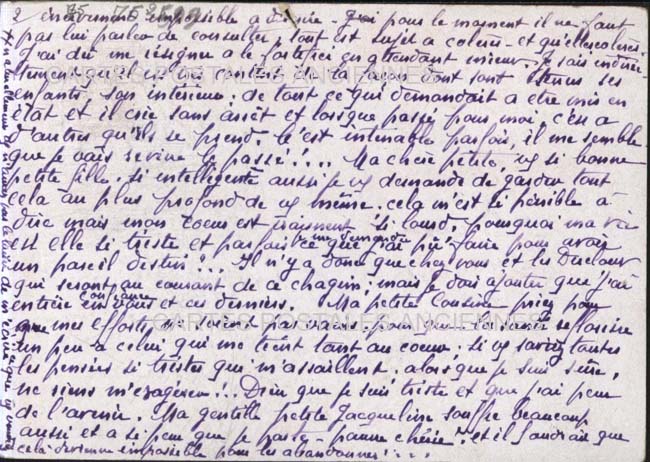 2 impossible à dire - Et pour le moment il ne faut
pas lui parler de consulter, tout est sujet à colères - et quelles colères.
J'ai dû me résigner à le fortifier en attendant mieux. Je sais
qu'il n'est content de la façon dont sont tenus ses
enfants, son intérieur, de tout ce qui demandait à être mis en
état et il crie sans arrêt et lorsque passé pour moi, c'en a
d'autres qu'ils se prend. C'est intenable parfois, il me semble
que je vais revivre le passé!... Ma chère petite, vs si bonne
petite fille, si intelligente aussi je vs demande de garder tout
cela au plus profond de vs même. cela m'est si pénible à
dire mais mon coeur est vraiment si lourd. Pourquoi ma vie
est elle si triste et parfois je me demande ce que j'ai pu faire pour avoir
un pareil destin!... Il n'y a donc que chez vous et les Duclour
qui seront au courant de ce chagrin; mais je dois ajouter que j'ai
entière confiance en vous et ces derniers. Ma petite Cousine priez pour
que mes efforts ne soient pas vains, pour que la santé
un peu à celui qui me tient tant au coeur. Si vs saviez toutes
les pensées si tristes qui m'assaillent, alors que je suis seule,
ne m'exagérer!.. Dieu que je suis triste et que j'ai peur
de l'avenir. Ma gentille petite Jacqueline souffre beaucoup
aussi et a si peur que je parte - pauvre chérie! et il faudrait que
cela devienne impossible pour les abandonner!...
CARTES POSTALES ANCIENNES
CARTES POSTALES ANCIENNES